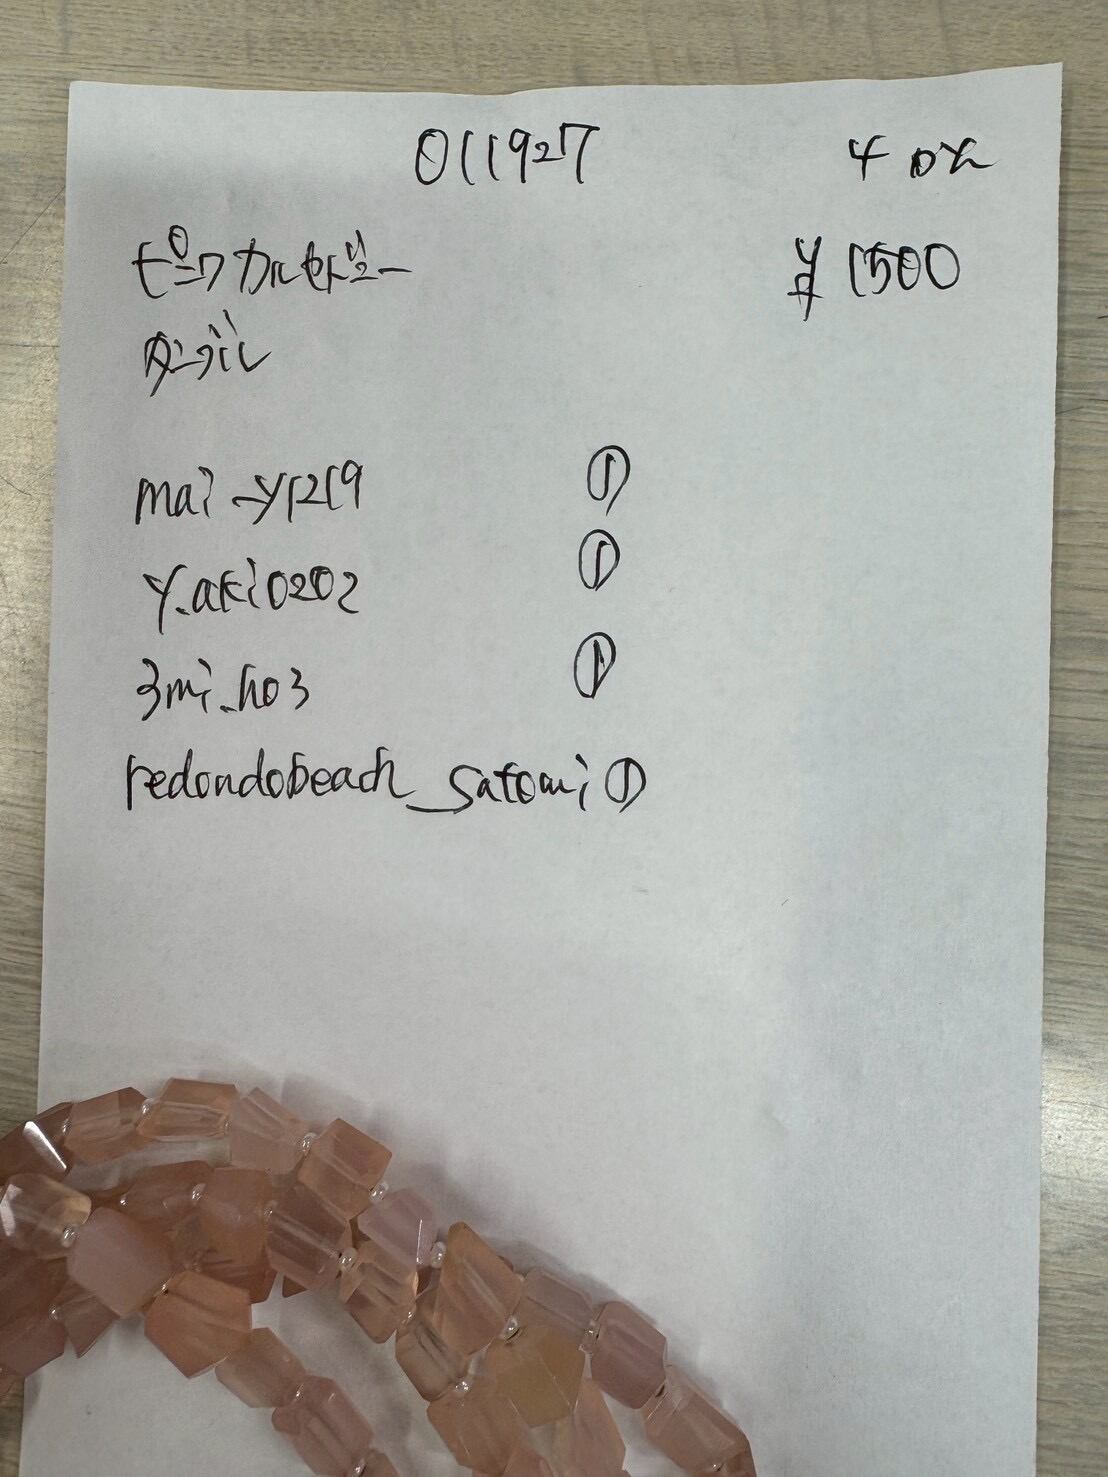 011927
¥1500
ピンクカルセドニー
タンブル
mai_y1219 ①
y.aki0202 ①
3mi.ho3 ①
redondobeach_satomi ①